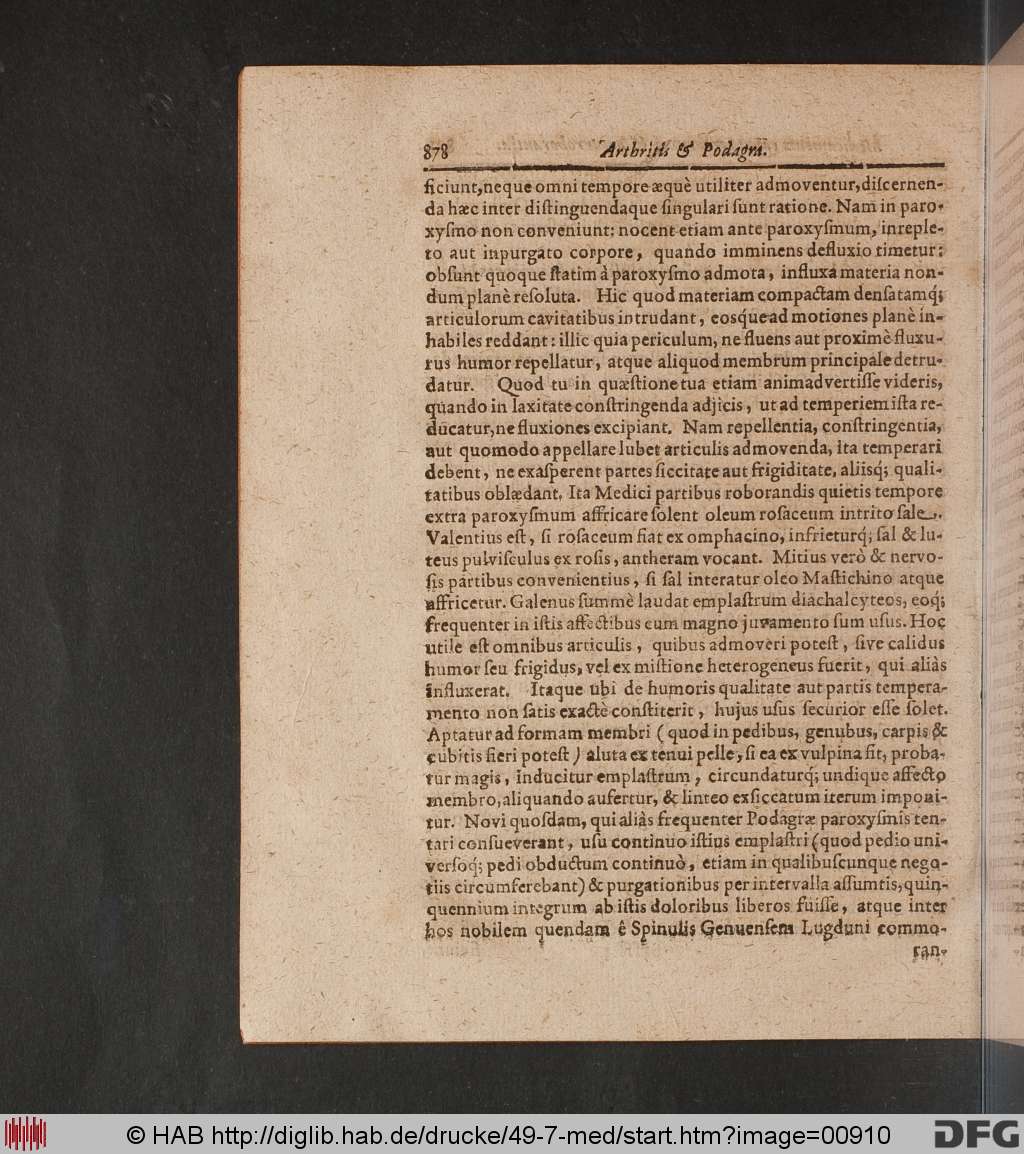 878 Arthritis & Podagra.
ficiunt,neque omni tempore æquè utiliter admoventur,diſcernen-
da hæc inter diſtinguendaque ſingulari ſunt ratione. Nam in paro-
xyſmo non conveniunt: nocent etiam ante paroxyſmum, inreple-
to aut inpurgato corpore, quando imminens defluxio timetur:
obſunt quoque ſtatim à paroxyſmo admota, influxa materia non-
dum planè reſoluta. Hic quod materiam compactam denſatamq́;
articulorum cavitatibus intrudant, eosq́ue ad motiones planè in-
habiles reddant: illic quia periculum, ne fluens aut proximè fluxu-
rus humor repellatur, atque aliquod membrum principale detru-
datur. Quod tu in quæſtione tua etiam animadvertiſſe videris,
quando in laxitate conſtringenda adjicis, ut ad temperiem iſta re-
ducatur,ne fluxiones excipiant. Nam repellentia, conſtringentia,
aut quomodo appellare lubet articulis admovenda, ita temperari
debent, ne exaſperent partes ſiccitate aut frigiditate, aliisq́; quali-
tatibus oblædant. Ita Medici partibus roborandis quietis tempore
extra paroxyſmum affricare ſolent oleum roſaceum intrito ſale.
Valentius eſt, ſi roſaceum fiat ex omphacino, infrieturq́; ſal & lu-
teus pulviſculus ex roſis, antheram vocant. Mitius verò & nervo-
ſis partibus convenientius, ſi ſal interatur oleo Maſtichino atque
affricetur. Galenus ſummè laudat emplaſtrum diachalcyteos, eoq́;
frequenter in iſtis affectibus cum magno juvamento ſum uſus. Hoc
utile eſt omnibus articulis, quibus admoveri poteſt, ſive calidus
humor ſeu frigidus, vel ex miſtione heterogeneus fuerit, qui aliàs
influxerat. Itaque ubi de humoris qualitate aut partis tempera-
mento non ſatis exactè conſtiterit, hujus uſus ſecurior eſſe ſolet.
Aptatur ad formam membri ( quod in pedibus, genubus, carpis &
cubitis fieri poteſt ) aluta ex tenui pelle, ſi ea ex vulpina fit, proba-
tur magis, inducitur emplaſtrum, circundaturq́; undique affecto
membro,aliquando aufertur, & linteo exſiccatum iterum imponi-
tur. Novi quoſdam, qui aliàs frequenter Podagræ paroxyſmis ten-
tari conſueverant, uſu continuo iſtius emplaſtri (quod pedio uni-
verſoq́; pedi obductum continuò, etiam in qualibuſcunque nego-
tiis circumferebant) & purgationibus per intervalla aſſumtis, quin-
quennium integrum ab iſtis doloribus liberos fuiſſe, atque inter
hos nobilem quendam ê Spinulis Genuenſem Lugduni commo-
ran-
© HAB http://diglib.hab.de/drucke/49-7-med/start.htm?image=00910
DFG